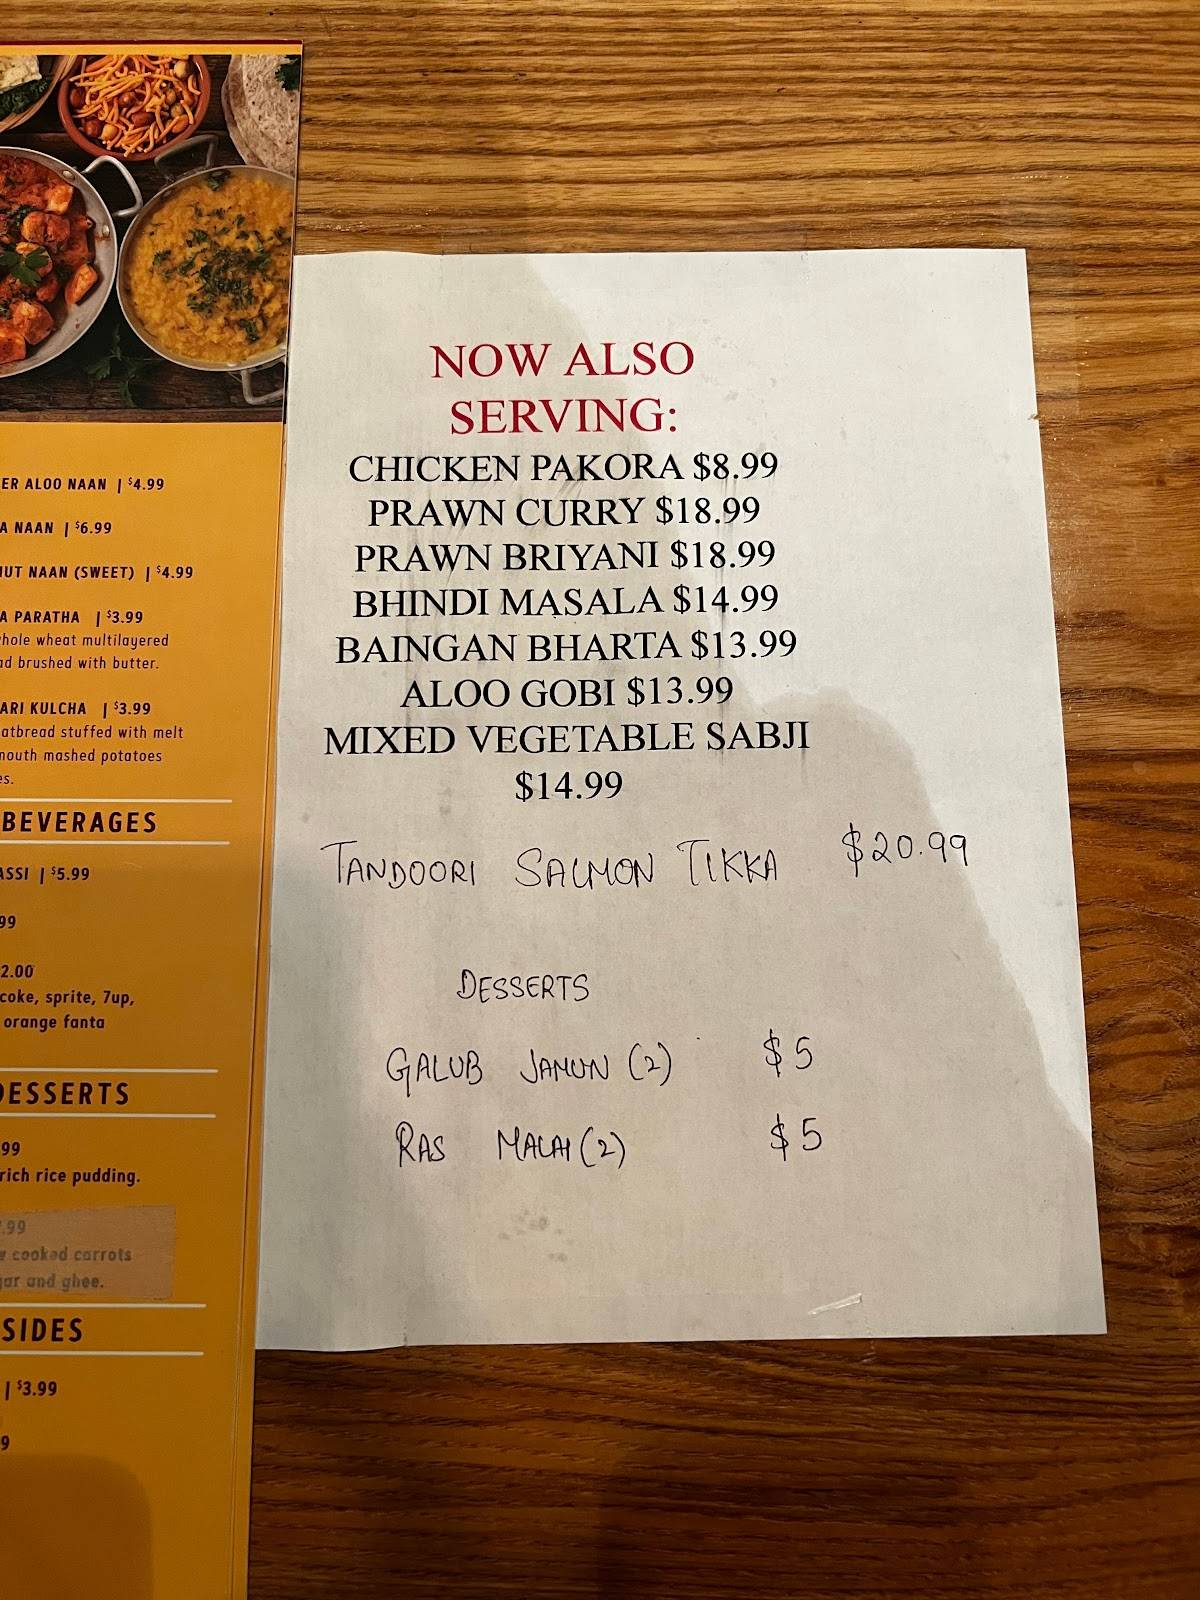 ER ALOO NAAN | $4.99
A NAAN | $6.99
NUT NAAN (SWEET) | $4.99
A PARATHA | $3.99
whole wheat multilayered
ad brushed with butter.
ARI KULCHA | $3.99
atbread stuffed with melt
mouth mashed potatoes
es.
BEVERAGES
ASSI | $5.99
99
2.00
coke, sprite, 7up,
orange fanta
DESSERTS
99
rich rice pudding.
.99
cooked carrots
gar and ghee.
SIDES
| $3.99
9
NOW ALSO
SERVING:
CHICKEN PAKORA $8.99
PRAWN CURRY $18.99
PRAWN BRIYANI $18.99
BHINDI MASALA $14.99
BAINGAN BHARTA $13.99
ALOO GOBI $13.99
MIXED VEGETABLE SABJI
$14.99
TANDOORI SALMON TIKKA $20.99
DESSERTS
GALUB JAMUN (2) $5
RAS MALAI (2) $5